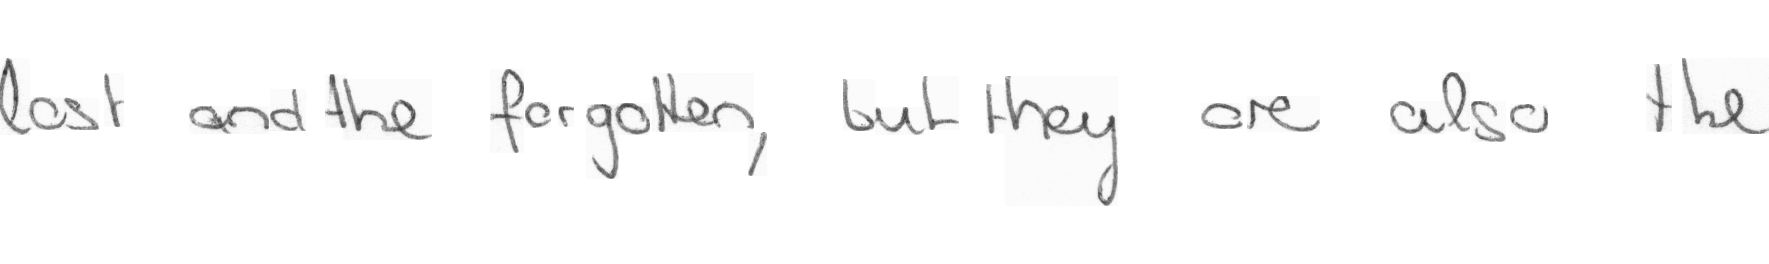 lost and the forgotten, but they are also the